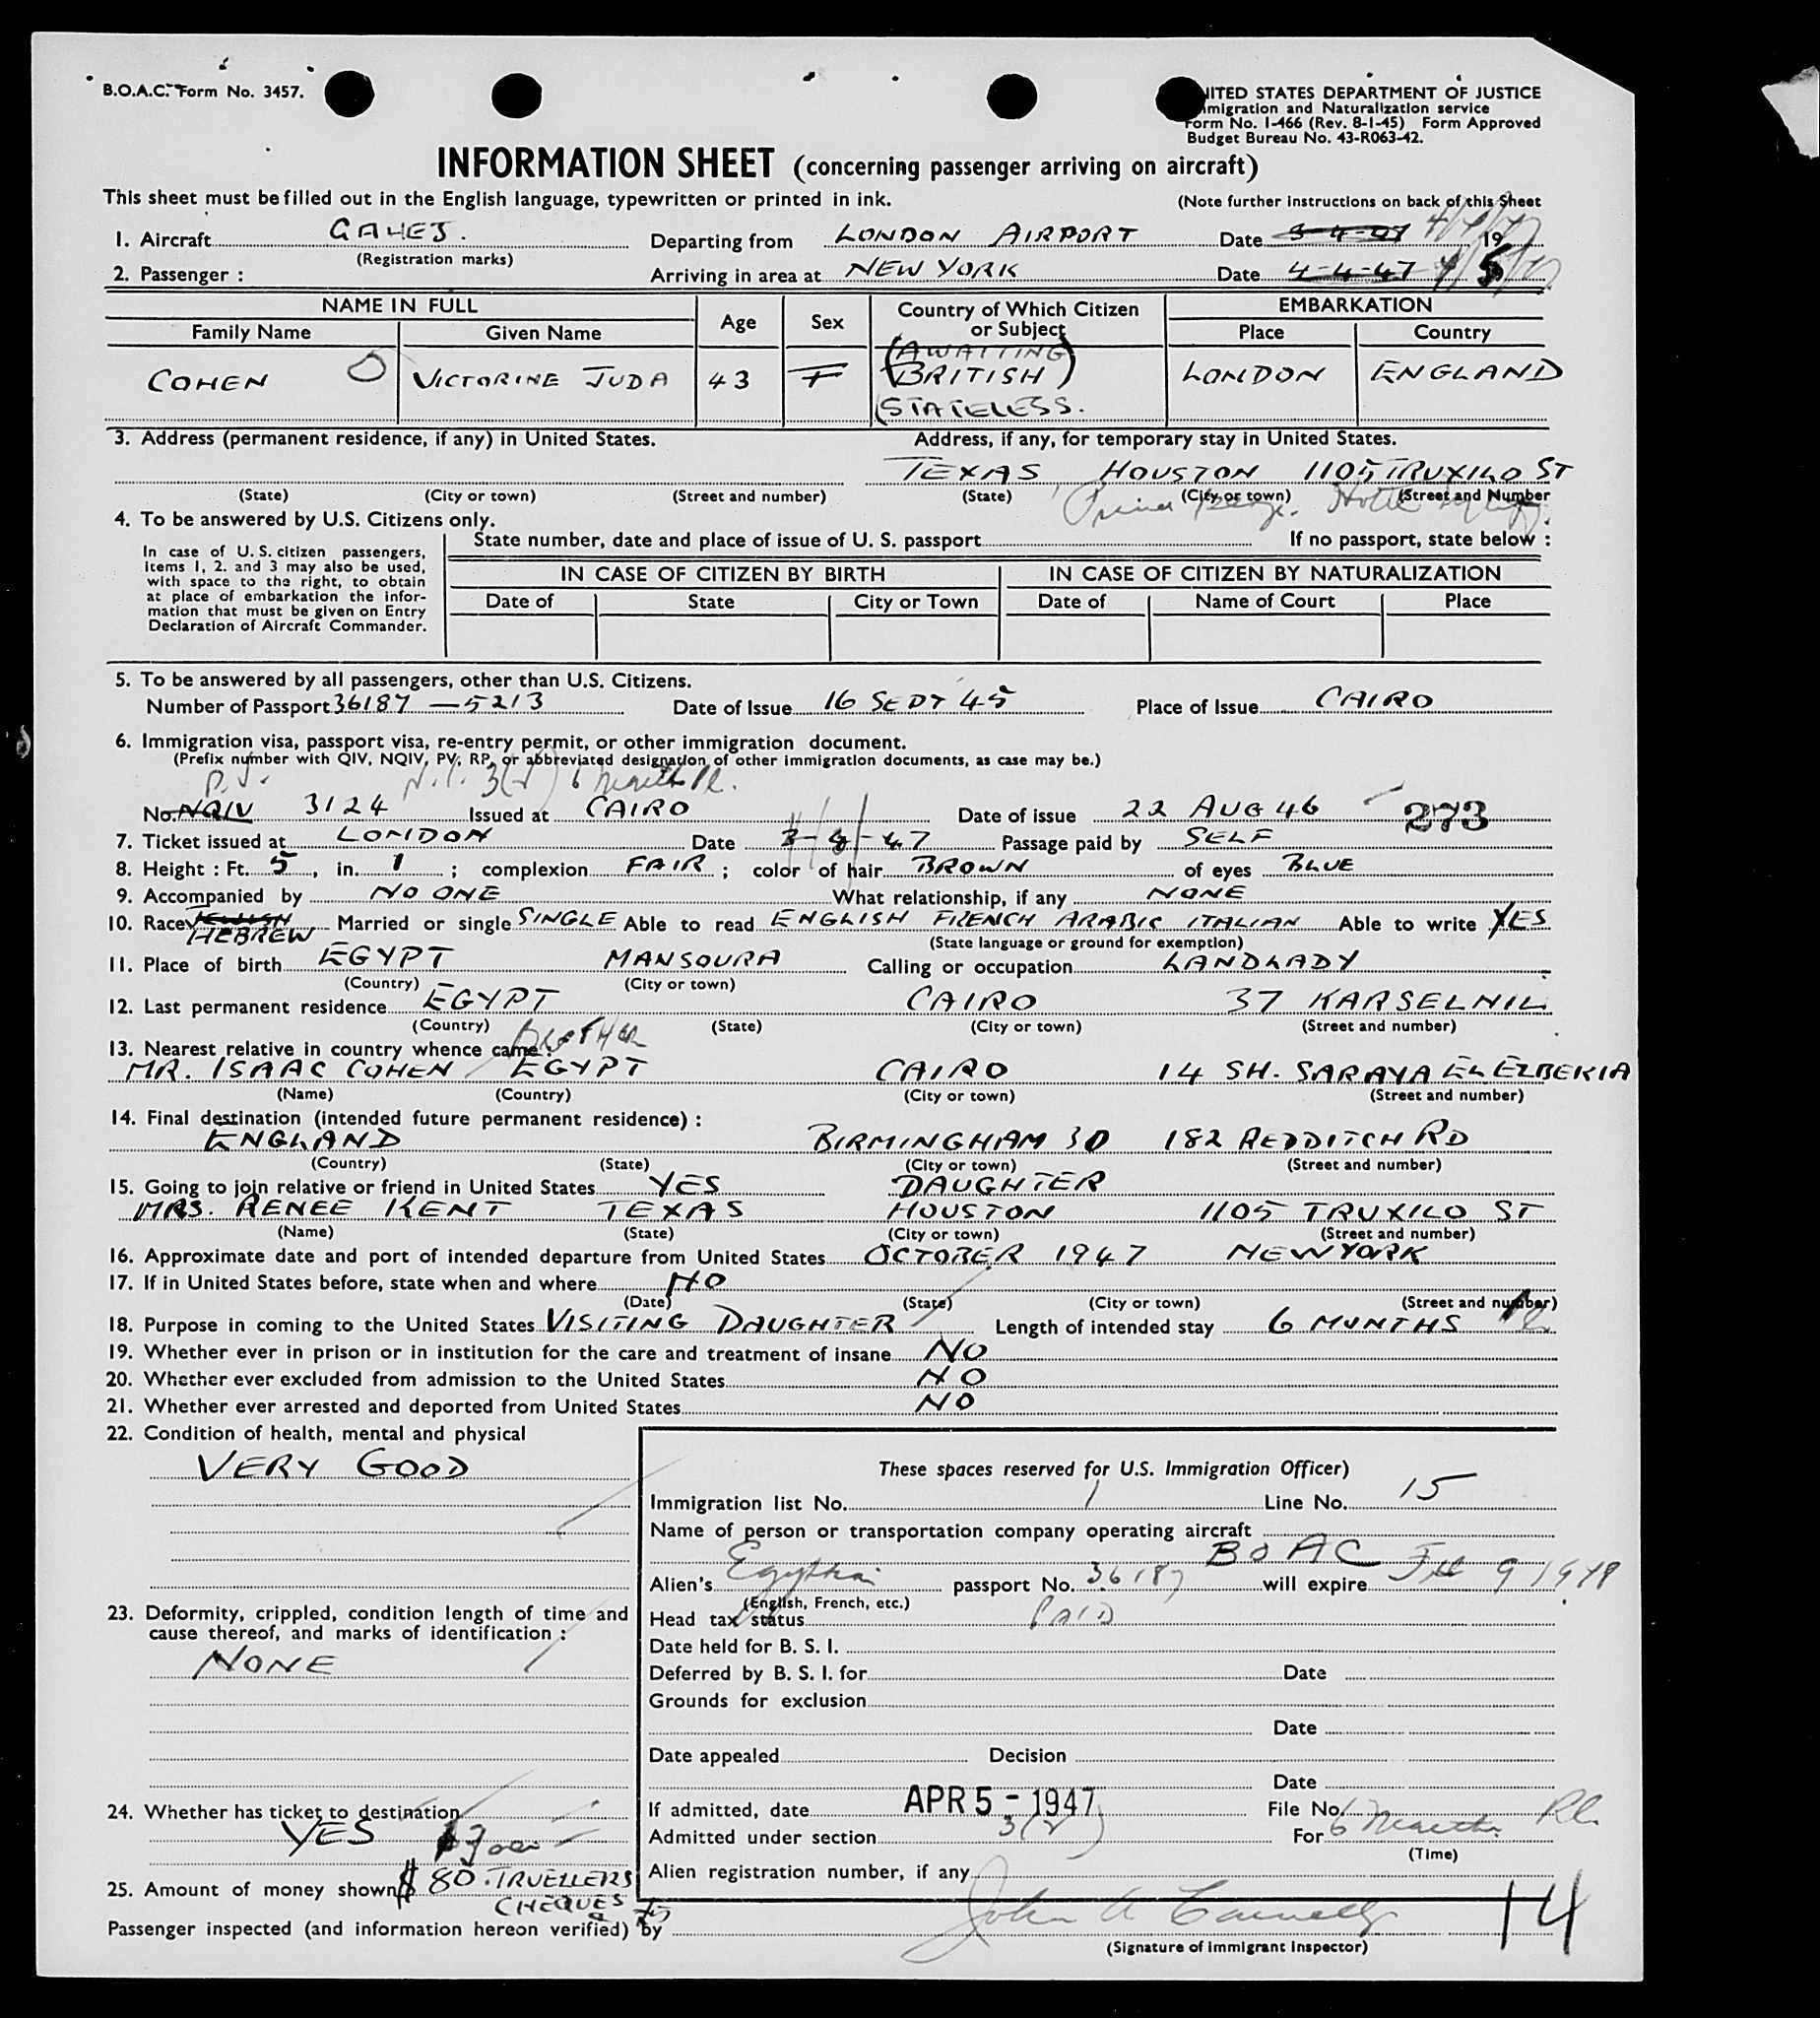 B.O.A.C. Form No. 3457.
UNITED STATES DEPARTMENT OF JUSTICE
Immigration and Naturalization service
Form No. I-466 (Rev. 8-1-45) Form Approved
Budget Bureau No. 43-R063-42.
INFORMATION SHEET (concerning passenger arriving on aircraft)
This sheet must be filled out in the English language, typewritten or printed in ink.
(Note further instructions on back of this Sheet
1. Aircraft GAHEJ. Departing from LONDON AIRPORT Date 3-4-47 4/4/47 19
(Registration marks)
2. Passenger : Arriving in area at NEW YORK Date 4-4-47 4/5/47
NAME IN FULL Age Sex Country of Which Citizen or Subject EMBARKATION
Family Name Given Name Place Country
(AWAITING)
COHEN VICTORINE JUDA 43 F (BRITISH) LONDON ENGLAND
(STATELESS.
3. Address (permanent residence, if any) in United States. Address, if any, for temporary stay in United States.
TEXAS, HOUSTON 1105 TRUXILO ST
(State) (City or town) (Street and number) (State) (City or town) (Street and Number
Prince George Hotel
4. To be answered by U.S. Citizens only.
State number, date and place of issue of U. S. passport If no passport, state below :
In case of U. S. citizen passengers,
items 1, 2. and 3 may also be used,
with space to the right, to obtain
at place of embarkation the infor-
mation that must be given on Entry
Declaration of Aircraft Commander.
IN CASE OF CITIZEN BY BIRTH IN CASE OF CITIZEN BY NATURALIZATION
Date of State City or Town Date of Name of Court Place
5. To be answered by all passengers, other than U.S. Citizens.
Number of Passport 36187 — 5213 Date of Issue 16 SEPT 45 Place of Issue CAIRO
6. Immigration visa, passport visa, re-entry permit, or other immigration document.
(Prefix number with QIV, NQIV, PV, RP, or abbreviated designation of other immigration documents, as case may be.)
3(2) 6 Months
No. NQIV 3124 Issued at CAIRO Date of issue 22 AUG 46 273
7. Ticket issued at LONDON Date 3-4-47 Passage paid by SELF
8. Height : Ft. 5, in. 1 ; complexion FAIR ; color of hair BROWN of eyes BLUE
9. Accompanied by NO ONE What relationship, if any NONE
10. Race JEWISH HEBREW Married or single SINGLE Able to read ENGLISH FRENCH ARABIC ITALIAN Able to write YES
(State language or ground for exemption)
11. Place of birth EGYPT MANSOURA Calling or occupation LANDLADY
(Country) (City or town)
12. Last permanent residence EGYPT CAIRO 37 KARSELNIL
(Country) (State) (City or town) (Street and number)
13. Nearest relative in country whence came: BROTHER
MR. ISAAC COHEN EGYPT CAIRO 14 SH. SARAYA EL EZBEKIA
(Name) (Country) (City or town) (Street and number)
14. Final destination (intended future permanent residence) :
ENGLAND BIRMINGHAM 30 182 REDDITCH RD
(Country) (State) (City or town) (Street and number)
15. Going to join relative or friend in United States YES DAUGHTER
MRS. RENEE KENT TEXAS HOUSTON 1105 TRUXILO ST
(Name) (State) (City or town) (Street and number)
16. Approximate date and port of intended departure from United States OCTOBER 1947 NEWYORK
17. If in United States before, state when and where NO
(Date) (State) (City or town) (Street and number)
18. Purpose in coming to the United States VISITING DAUGHTER Length of intended stay 6 MONTHS
19. Whether ever in prison or in institution for the care and treatment of insane NO
20. Whether ever excluded from admission to the United States NO
21. Whether ever arrested and deported from United States NO
22. Condition of health, mental and physical
VERY GOOD
23. Deformity, crippled, condition length of time and
cause thereof, and marks of identification :
NONE
24. Whether has ticket to destination
YES
25. Amount of money shown $ 80. TRUELLERS
CHEQUES
These spaces reserved for U.S. Immigration Officer)
Immigration list No. 1 Line No. 15
Name of person or transportation company operating aircraft
BOAC
Alien's Egyptian passport No. 36187 will expire Feb 9 1948
(English, French, etc.)
Head tax status PAID
Date held for B. S. I.
Deferred by B. S. I. for Date
Grounds for exclusion
Date
Date appealed Decision
Date
If admitted, date APR 5 - 1947 File No.
Admitted under section 3(2) For 6 Months
(Time)
Alien registration number, if any
Passenger inspected (and information hereon verified) by
(Signature of Immigrant Inspector)
14